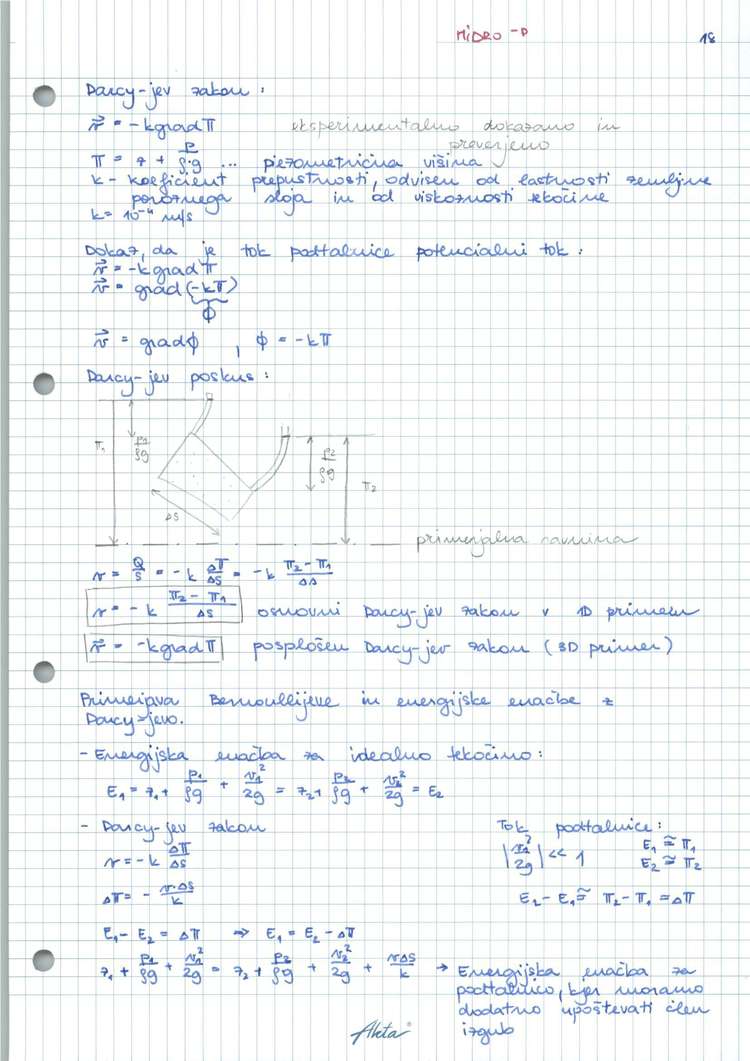 HIDRO-D 18
Darcy-jev zakon:
v⃗ = -k grad Π eksperimentalno dokazano in preverjeno
Π = z + p/ρ·g ... piezometrična višina
k - koeficient prepustnosti, odvisen od lastnosti zemljine
poroznega sloja in od viskoznosti tekočine
k = 10⁻⁴ m/s
Dokaz, da je tok podtalnice potencialni tok:
v⃗ = -k grad Π
v⃗ = grad(-kΠ)
ϕ
v⃗ = grad ϕ , ϕ = -kΠ
Darcy-jev poskus:
Π₁ p₁/ρg ΔS p₂/ρg Π₂
primerjalna ravnina
v = Q/S = -k ΔΠ/ΔS = -k Π₂-Π₁/ΔS
v = -k Π₂-Π₁/ΔS osnovni Darcy-jev zakon v 1D primeru
v⃗ = -k grad Π posplošen Darcy-jev zakon (3D primer)
Primerjava Bernoullijeve in energijske enačbe z
Darcy-jevo.
- Energijska enačba za idealno tekočino:
E₁ = z₁ + p₁/ρg + v₁²/2g = z₂ + p₂/ρg + v₂²/2g = E₂
- Darcy-jev zakon Tok podtalnice:
v = -k ΔΠ/ΔS |v₁²/2g| << 1 E₁ ≅ Π₁
E₂ ≅ Π₂
ΔΠ = - v·ΔS/k E₂ - E₁ ≅ Π₂ - Π₁ = ΔΠ
E₁ - E₂ = ΔΠ ⇒ E₁ = E₂ - ΔΠ
z₁ + p₁/ρg + v₁²/2g = z₂ + p₂/ρg + v₂²/2g + vΔS/k → Energijska enačba za
podtalnico, kjer moramo
dodatno upoštevati člen
izgub
Akta